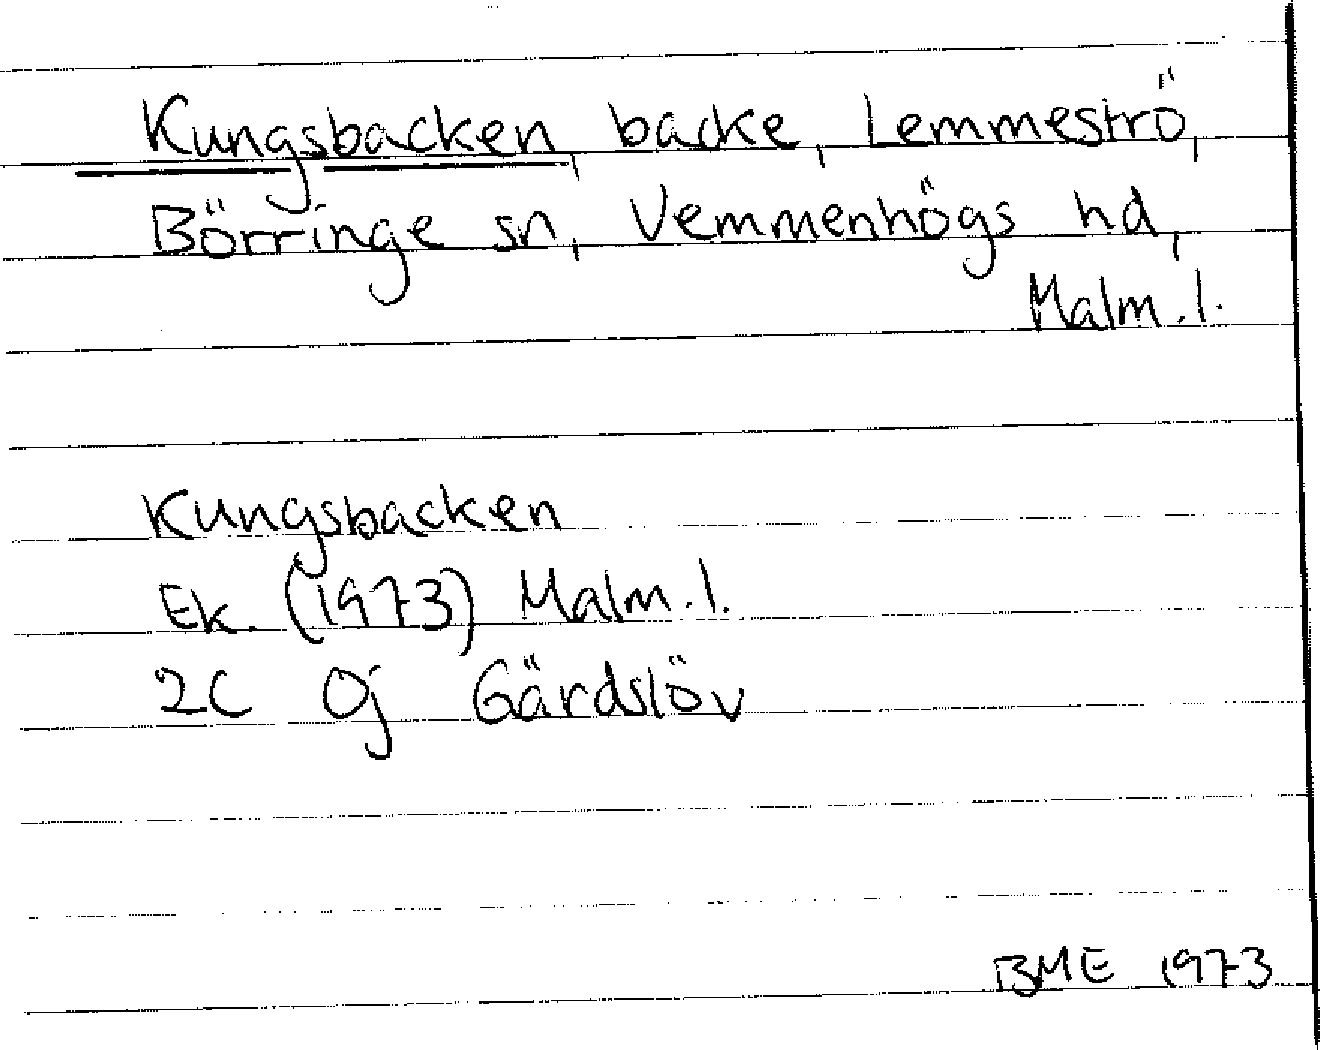 Kungsbacken, backe, Lemmeströ,
Börringe sn, Vemmenhögs hd,
Malm.l.
Kungsbacken
Ek. (1973) Malm.l.
2C 0j Gärdslöv
BME 1973